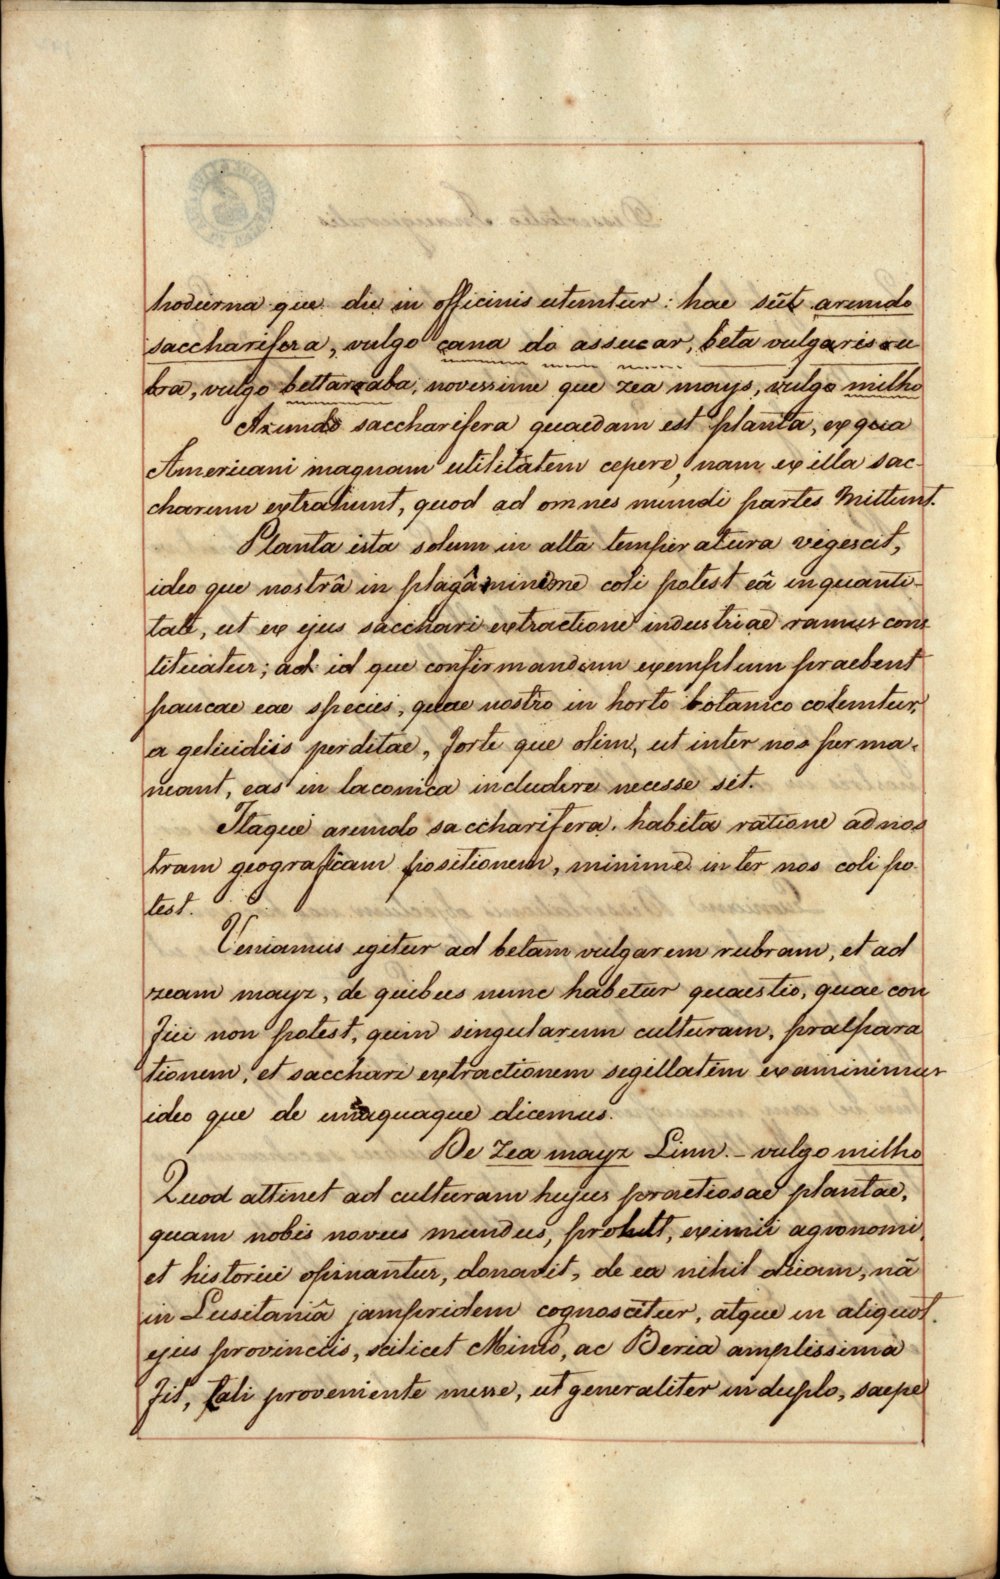 hodierna que die in officinis utuntur: hae sũt arundo
saccharifera, vulgo cana do assucar, beta vulgaris ru
bra, vulgo bettarraba, novessime que zea mays, vulgo milho
Arundo saccharifera quaedam est planta, ex qua
Americani magnam utilitatem cepere, nam ex illa sac-
charum extrahunt, quod ad omnes mundi partes mittunt.
Planta ista solum in alta temperatura vigescit,
ideo que nostrâ in plagâ minime coli potest eâ in quanti-
tate, ut ex ejus sacchari extractione industriae ramus cons
tituatur; ad id que confirmandum exemplum praebent
paucae eae species, quae nostro in horto botanico coluntur,
a gelicidiis perditae, forte que olim, ut inter nos perma-
neant, eas in laconica includere necesse sit.
Itaque arundo saccharifera, habita ratione ad nos
tram geograficam positionem, minime inter nos coli po-
test.
Veniamus igitur ad betam vulgarem rubram, et ad
zeam mayz, de quibus nunc habetur quaestio, quae con
fici non potest, quin singularum culturam, praepara
tionem, et sacchari extractionem segillatim examinimus
ideo que de unaquaque dicemus.
De Zea mayz Linn. - vulgo milho
Quod attinet ad culturam hujus praetiosae plantae,
quam nobis novus mundus, prout, eximii agronomi,
et historici opinantur, donavit, de ea nihil dicam, nã
in Lusitaniâ jampridem cognoscitur, atque in aliquot
ejus provinciis, scilicet Minio, ac Beria amplissima
fit, tali proveniente messe, ut generaliter in duplo, saepe